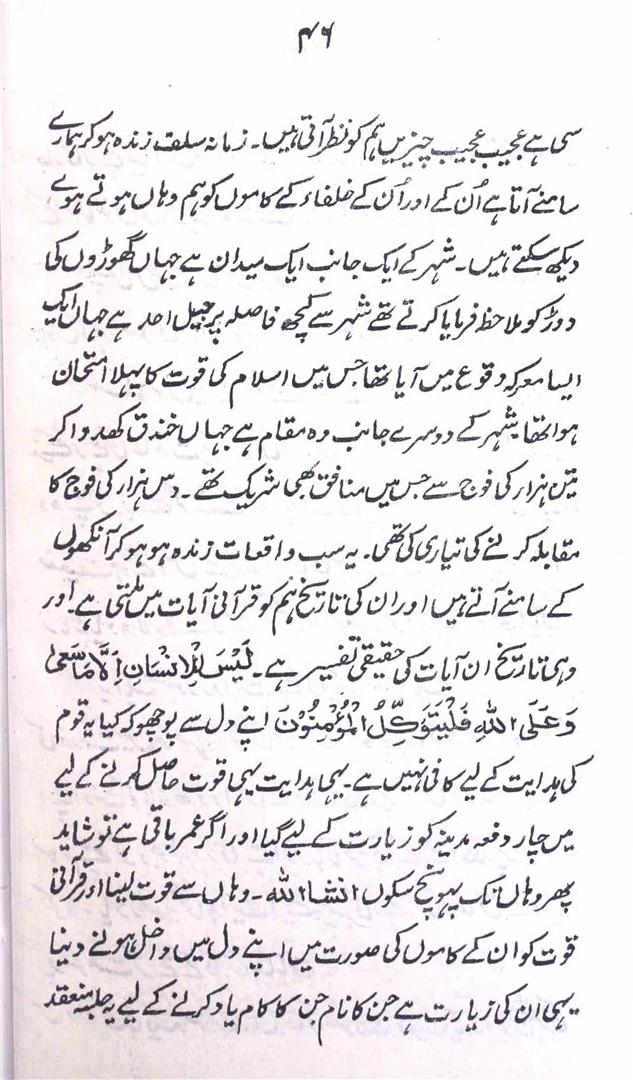 ۴۶
سی ہے عجیب عجیب چیزیں ہم کو نظر آتی ہیں۔ زمانہ سلف زندہ ہو کر ہمارے
سامنے آتا ہے اُن کے اور اُن کے خلفاء کے کاموں کو ہم وہاں ہوتے ہوے
دیکھ سکتے ہیں۔ شہر کے ایک جانب ایک میدان ہے جہاں گھوڑوں کی
دوڑ کو ملاحظ فرمایا کرتے تھے شہر سے کچھ فاصلہ پر جبیل احد ہے جہاں ایک
ایسا معرکہ وقوع میں آیا تھا جس میں اسلام کی قوت کا پہلا امتحان
ہوا تھا۔ شہر کے دوسرے جانب وہ مقام ہے جہاں خندق کھدوا کر
تین ہزار کی فوج سے جس میں منافق بھی شریک تھے۔ دس ہزار کی فوج کا
مقابلہ کرنے کی تیاری کی تھی۔ یہ سب واقعات زندہ ہو ہو کر آنکھوں
کے سامنے آتے ہیں اور ان کی تاریخ ہم کو قرآنی آیات میں ملتی ہے۔ اور
وہی تاریخ ان آیات کی حقیقی تفسیر ہے۔ لَیْسَ لِلْاِنْسَانِ اِلَّا مَا سَعیٰ
وَعَلَی اللهِ فَلْیَتَوَکَّلِ الْمُؤْمِنُوْنَ اپنے دل سے پوچھو کہ کیا یہ قوم
کی ہدایت کے لیے کافی نہیں ہے۔ یہی ہدایت یہی قوت حاصل کرنے کے لیے
میں چار دفعہ مدینہ کو زیارت کے لیے گیا اور اگر عمر باقی ہے تو شاید
پھر وہاں تک پہونچ سکوں انشا اللہ۔ وہاں سے قوت لینا اور قرآنی
قوت کو ان کے کاموں کی صورت میں اپنے دل میں داخل ہونے دینا
یہی ان کی زیارت ہے جن کا نام جن کا کام یاد کرنے کے لیے یہ جلسہ منعقد